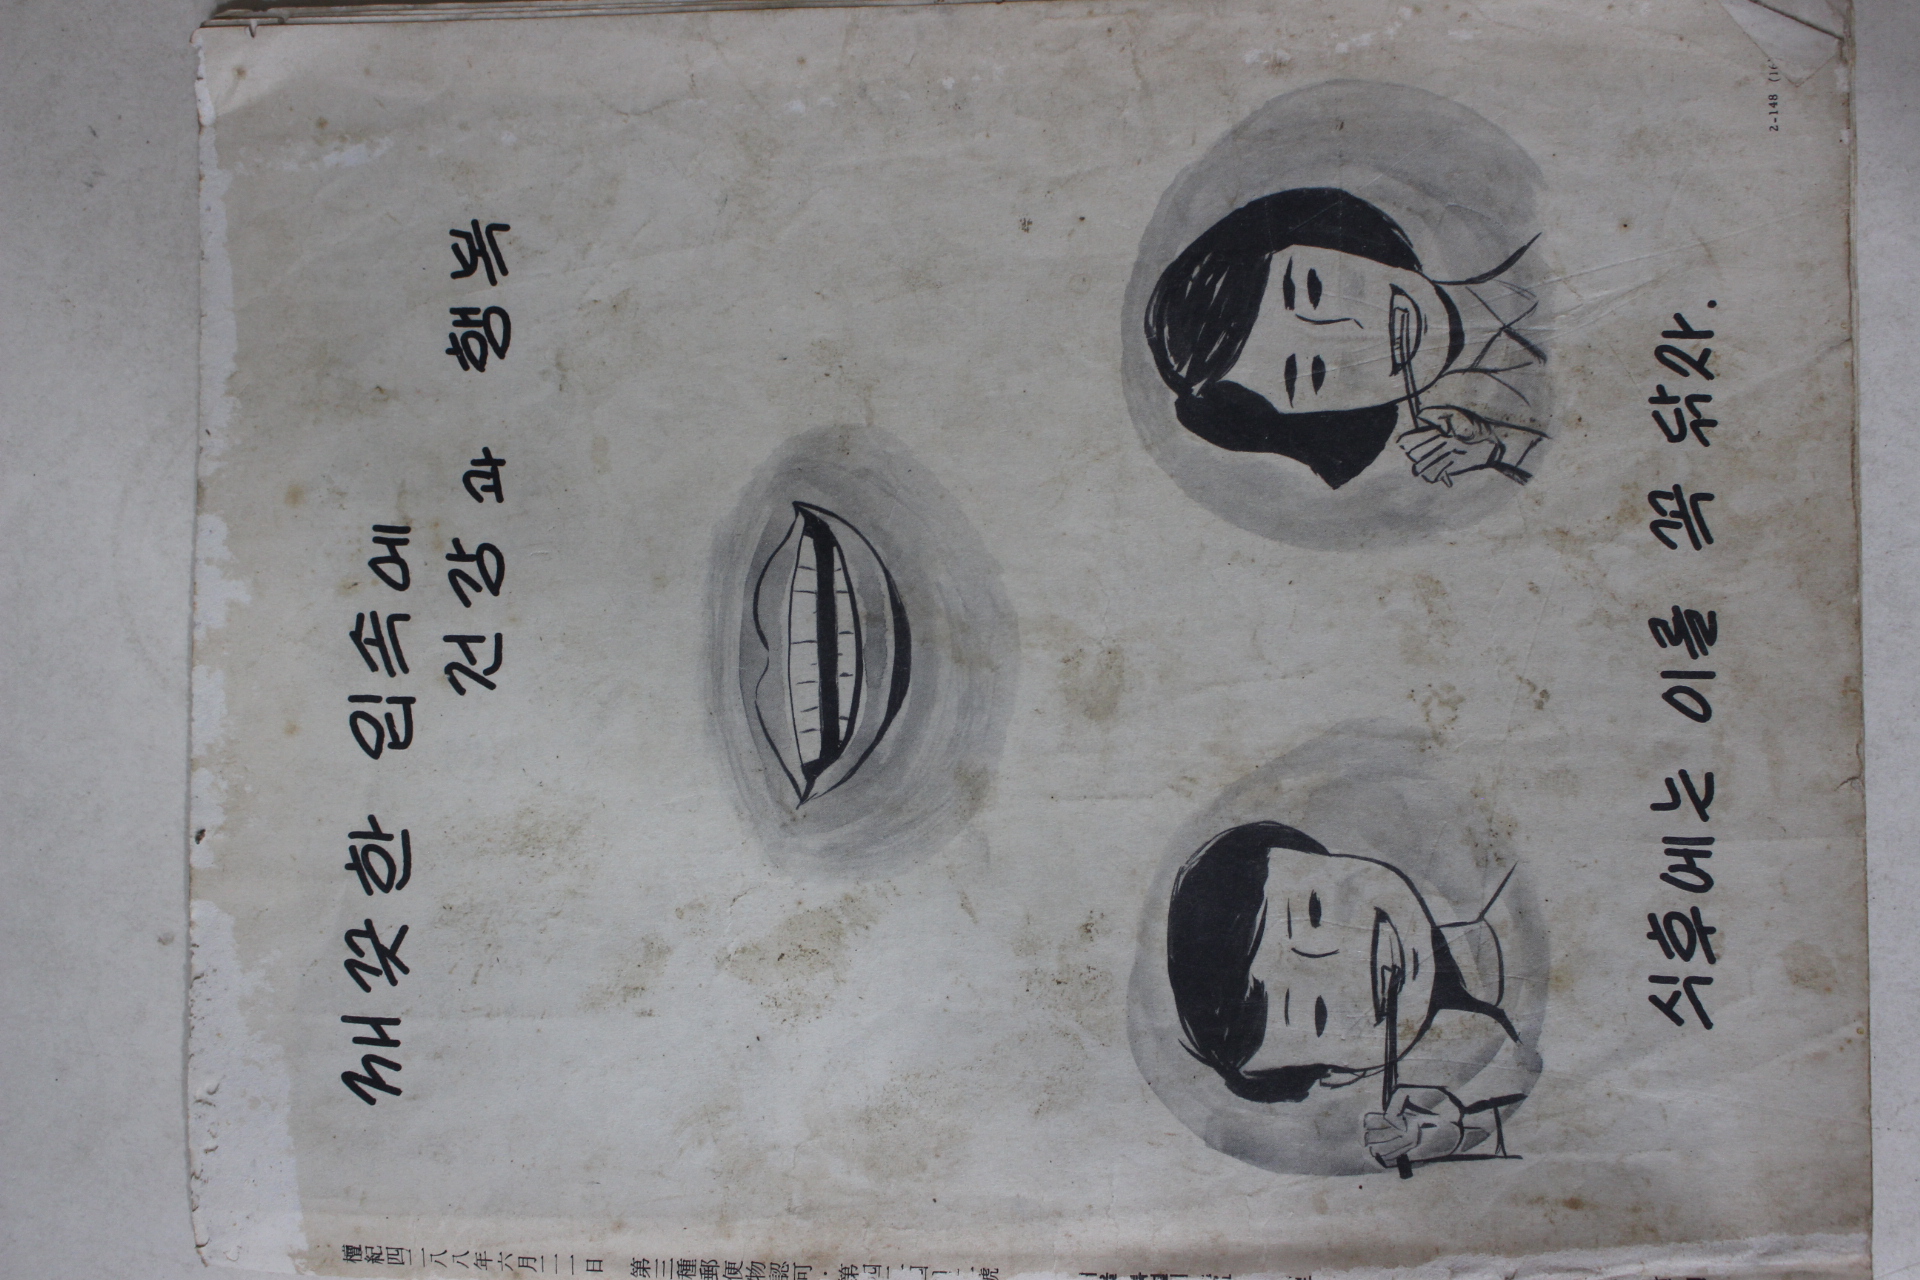 깨끗한 입속에
건강과 행복
식후에는 이를 꼭 닦자.
2-148
檀紀四二八八年六月二一日
第三種郵便物認可